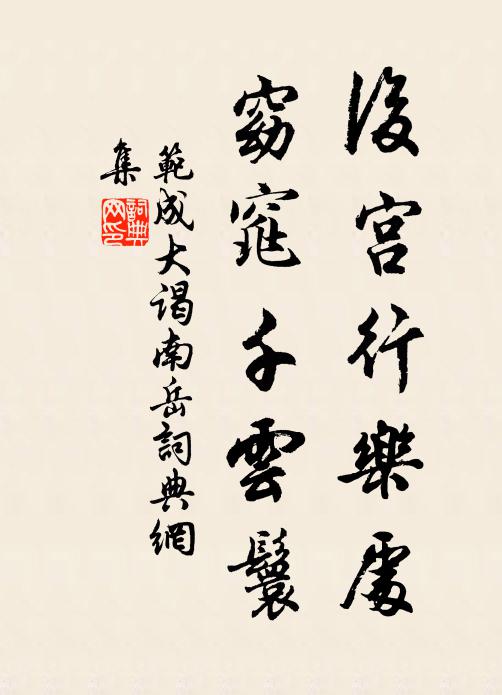 後宮行樂處
窈窕千雲鬟
範成大謁南岳詞典網
集
詞典網印